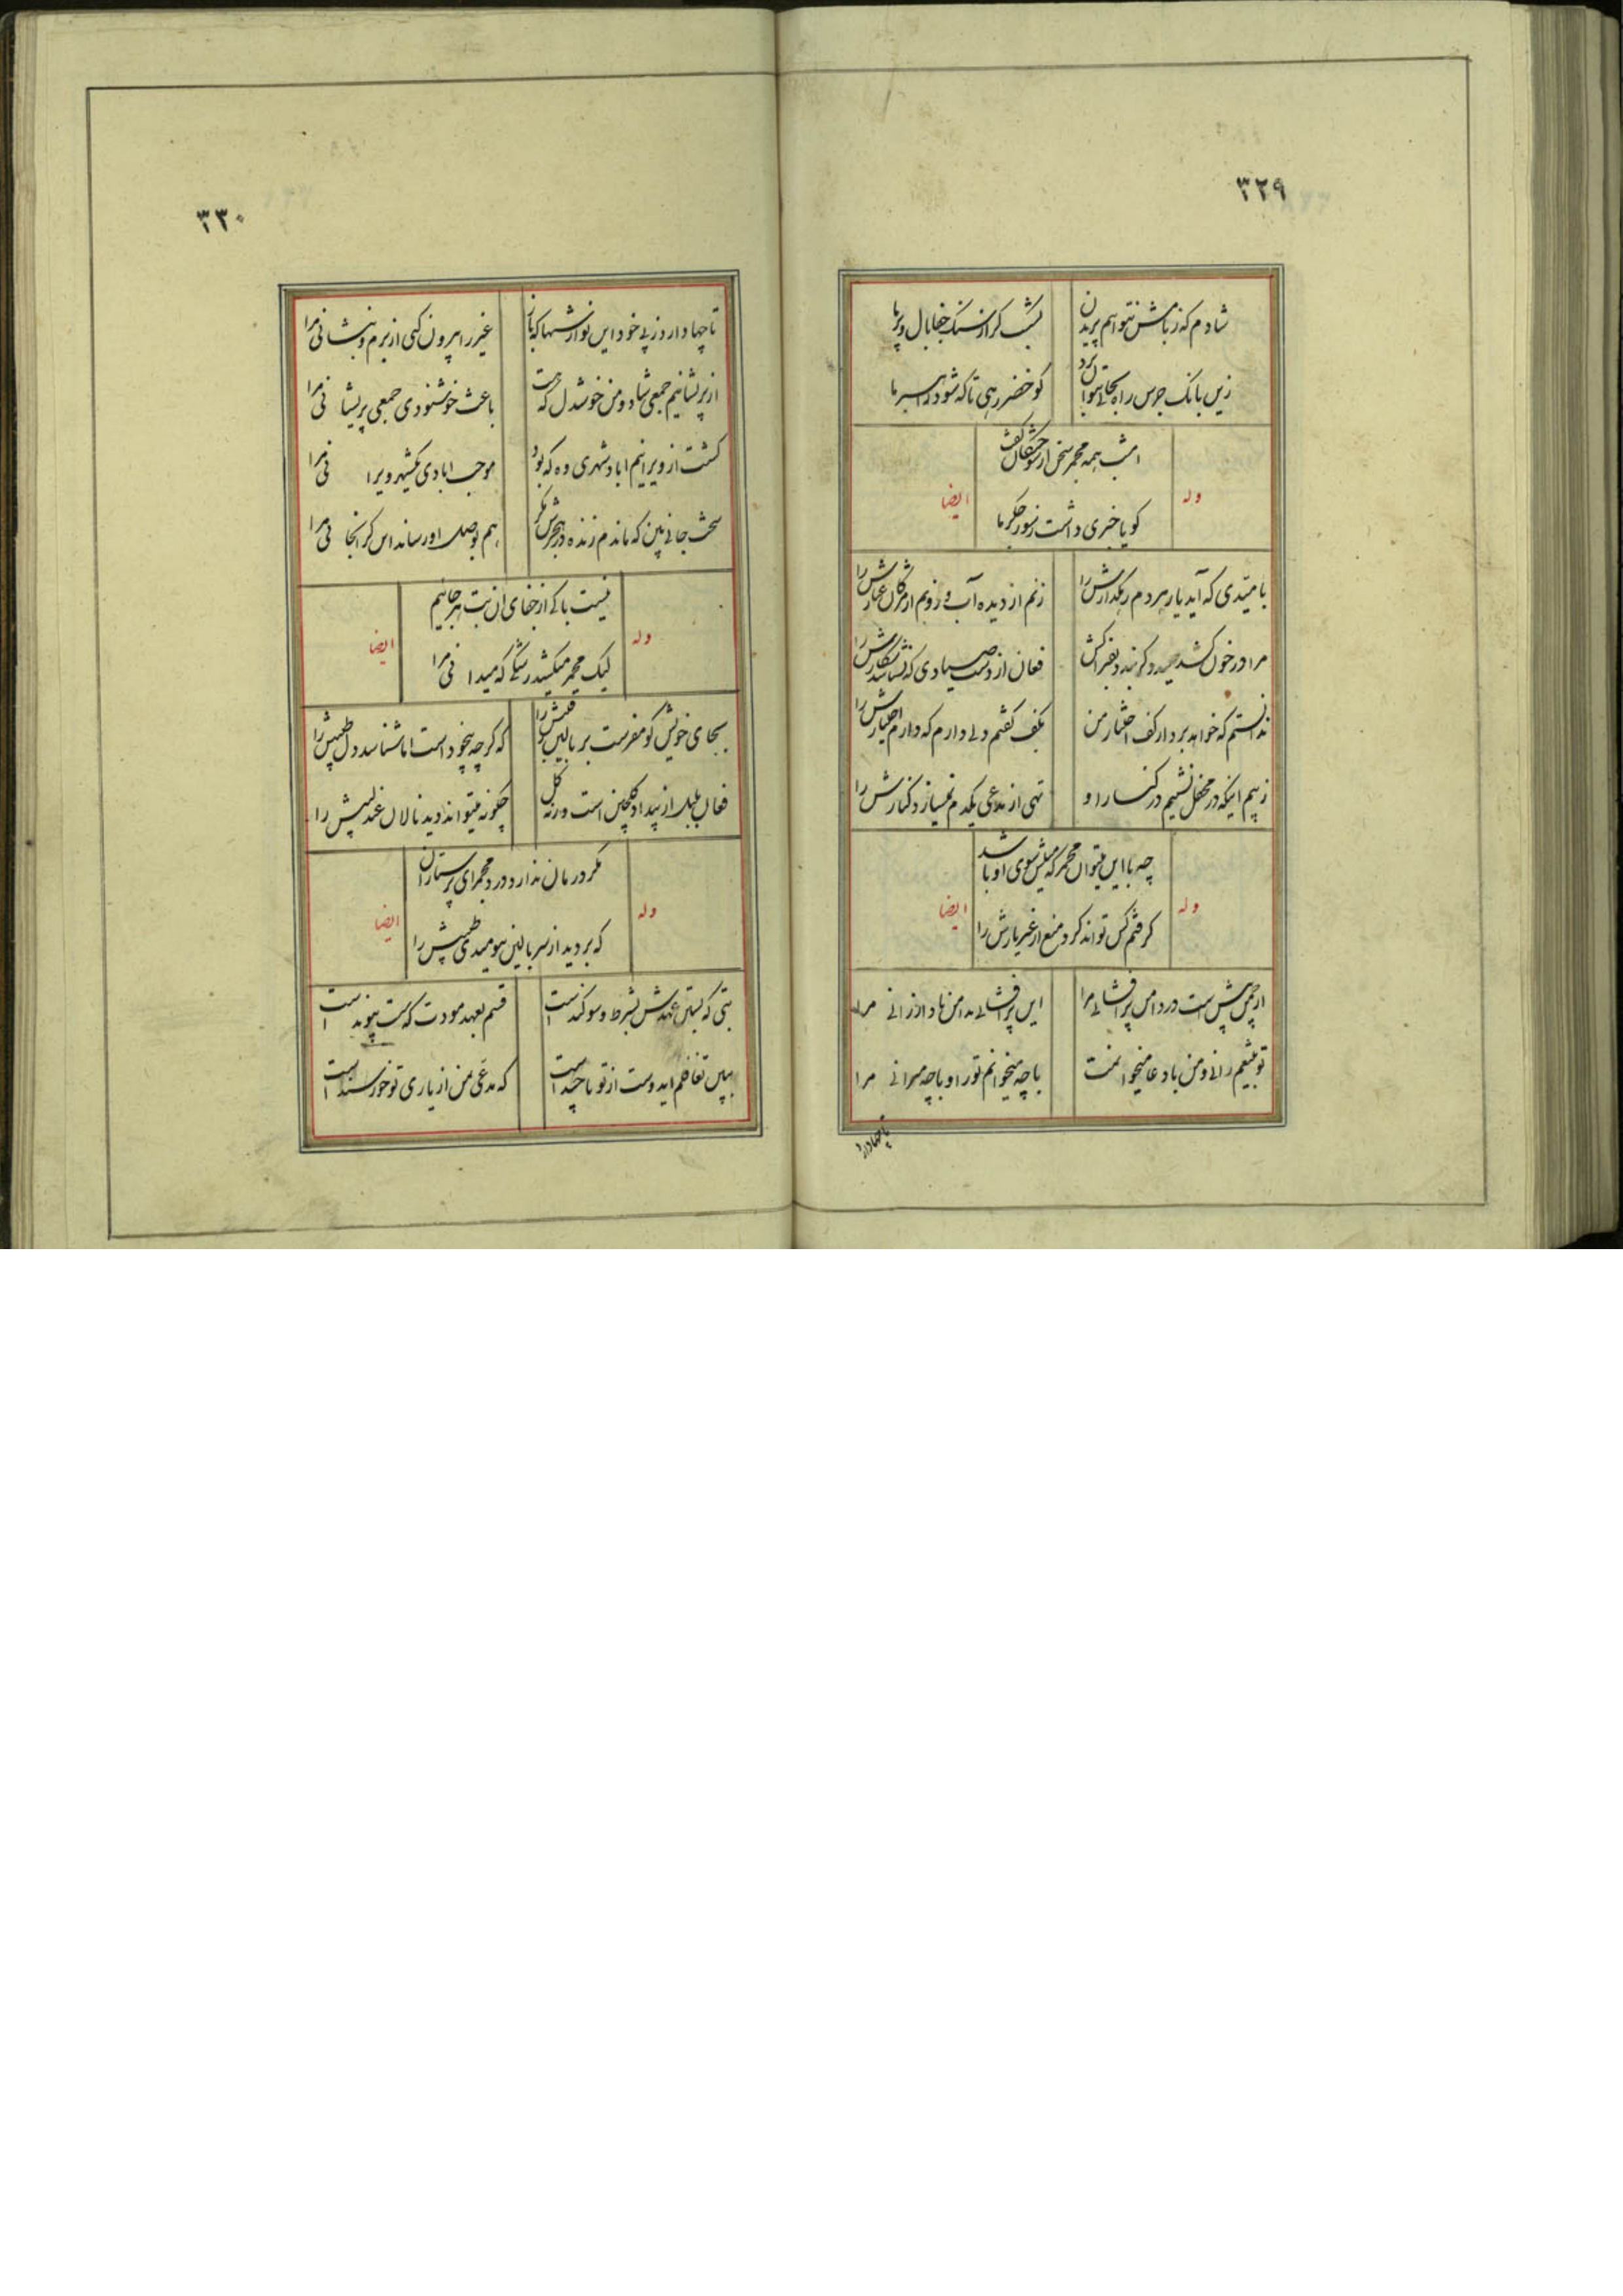 ۳۲۹
شادم که ز بامش نتوانم پریدن
بشکست گر از سنک جفا بال و پر ما
زین بانک جرس راه بجائی نتوان برد
کو خضر رهی تا که شود راهبر ما
امشب همه مجمر سخن از سوختکان گفت
وله
ایضا
کویا خبری داشت ز سوز جکر ما
بامیدی که آید یار هر دم رهکذارش را
زنم از دیده آب و روبم از مژکان غبارش را
مرا در خون کشد صید دکر بندد بفتراکش
فغان از دست صیادی که نشناسد شکارش را
ندانستم که خواهد برد از کف اختیار من
بکف کفتم دلی دارم که دارم اختیارش را
ز بیم اینکه در محفل نشینم در کنار او
تهی از مدعی یکدم نمیسازد کنارش را
چه با این میتوان مجمر که میلش سوی او باشد
وله
ایضا
کرفتم کس تواند کرد منع از غیر یارش را
از چمن پیش است در دامن پرافشانی مرا
این پرافشانی بدامن باد ارزانی مرا
تو بتیغم رانی و من با دعا میخوانمت
با چه میخوانم تو را و با چه میرانی مرا
تا چها دارد
۳۳۰
تا چها دارد ز پی خود این نوازشها که باز
غیر را بیرون کنی از بزم و بنشانی مرا
از پریشانیم جمعی شاد و من خوشدل که هست
باعث خوشنودی جمعی پریشانی مرا
کشت از ویرانیم اباد شهری وه که بود
موجب ابادی یکشهر ویرانی مرا
سخت جانی بین که ماندم زنده در هجرش مکر
هم بوصل او رساند اس کرانجانی مرا
نیست باکی از جفای ان بت بیرحم
وله
ایضا
لیک مجمر میکشد رشکی که میدانی مرا
بجای خویش کو مفرست بر بالین رقیبش را
که کرچه بیخود است اما شناسد دل طبیبش را
فغان بلبل از بیداد کلچین است ورنه کل
چکونه میتواند دید نالان عندلیبش را
مکر درمان ندارد درد مجمر ای پرستاران
وله
ایضا
که بردید از سر بالین بنومیدی طبیبش را
بتی که بستن عهدش بشرط و سوکند است
قسم بعهد مودت که سست پیوند است
ببین تغافلم ایدوست از تو تا چند است
که مدعی من از یاری تو خورسند است